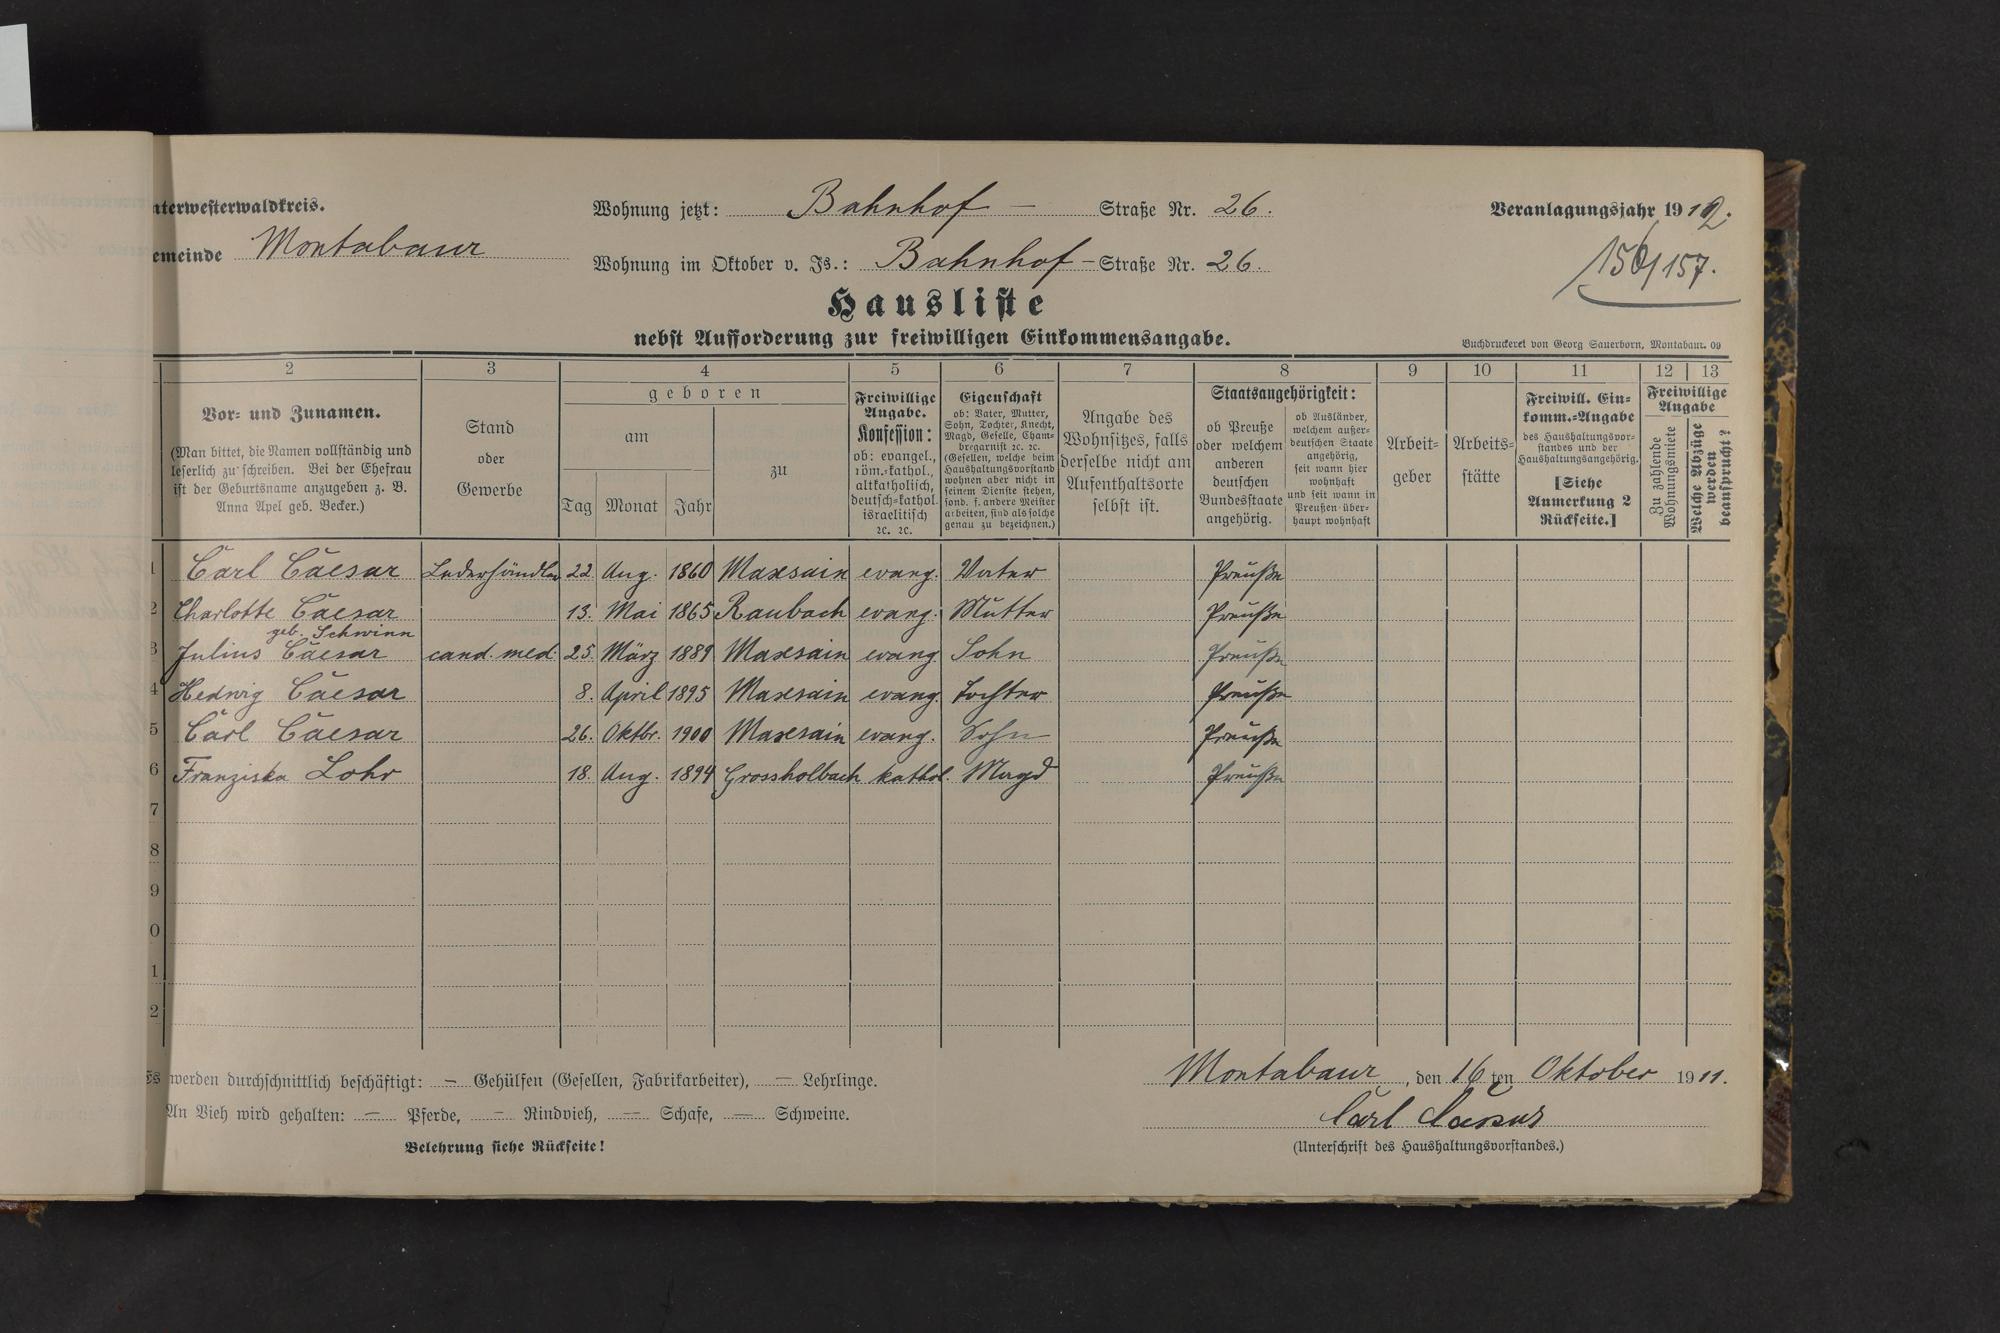 nterwesterwaldkreis.
Wohnung jetzt: Bahnhof – Straße Nr. 26.
Veranlagungsjahr 1912.
emeinde Montabaur
Wohnung im Oktober v. Js.: Bahnhof – Straße Nr. 26.
156/157.
Hausliste
nebst Aufforderung zur freiwilligen Einkommensangabe.
Buchdruckerei von Georg Sauerborn, Montabaur. 09
2 3 4 5 6 7 8 9 10 11 12 13
Vor- und Zunamen.
(Man bittet, die Namen vollständig und
leserlich zu schreiben. Bei der Ehefrau
ist der Geburtsname anzugeben z. B.
Anna Apel geb. Becker.)
Stand
oder
Gewerbe
geboren
am
Tag Monat Jahr
zu
Freiwillige
Angabe.
Konfession:
ob: evangel.,
röm.-kathol.,
altkatholisch,
deutsch-kathol.
israelitisch
ꝛc. ꝛc.
Eigenschaft
ob: Vater, Mutter,
Sohn, Tochter, Knecht,
Magd, Geselle, Cham-
bregarnist ꝛc. ꝛc.
(Gesellen, welche beim
Haushaltungsvorstand
wohnen aber nicht in
seinem Dienste stehen,
sond. f. andere Meister
arbeiten, sind als solche
genau zu bezeichnen.)
Angabe des
Wohnsitzes, falls
derselbe nicht am
Aufenthaltsorte
selbst ist.
Staatsangehörigkeit:
ob Preuße
oder welchem
anderen
deutschen
Bundesstaate
angehörig.
ob Ausländer,
welchem außer-
deutschen Staate
angehörig,
seit wann hier
wohnhaft
und seit wann in
Preußen über-
haupt wohnhaft
Arbeit-
geber
Arbeits-
stätte
Freiwill. Ein-
komm.-Angabe
des Haushaltungsvor-
standes und der
Haushaltungsangehörig.
[Siehe
Anmerkung 2
Rückseite.]
Freiwillige
Angabe
Zu zahlende
Wohnungsmiete
Welche Abzüge
werden
beansprucht?
1 Carl Caesar Lederhändler 22. Aug. 1860 Maxsain evang. Vater Preuße
2 Charlotte Caesar 13. Mai 1865 Raubach evang. Mutter Preuße
geb. Schwinn
3 Julius Caesar cand. med. 25. März 1889 Maxsain evang. Sohn Preuße
4 Hedwig Caesar 8. April 1895 Maxsain evang. Tochter Preuße
5 Carl Caesar 26. Oktbr. 1900 Maxsain evang. Sohn Preuße
6 Franziska Lohr 18. Aug. 1894 Grossholbach kathol. Magd Preuße
7
8
9
0
1
2
Es werden durchschnittlich beschäftigt: – Gehülfen (Gesellen, Fabrikarbeiter), – Lehrlinge.
Montabaur, den 16ten Oktober 1911.
An Vieh wird gehalten: – Pferde, – Rindvieh, – Schafe, – Schweine.
Carl Caesar
Belehrung siehe Rückseite!
(Unterschrift des Haushaltungsvorstandes.)